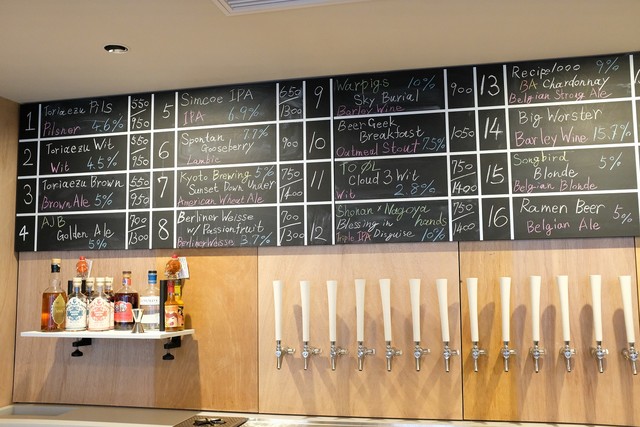 1
Toriaezu Pils
Pilsner 4.6%
550
950
2
Toriaezu Wit
Wit 4.5%
550
950
3
Toriaezu Brown
Brown Ale 5%
550
950
4
AJB
Golden Ale
5%
700
1300
5
Simcoe IPA
IPA 6.9%
650
1300
6
Spontan 7.7%
Gooseberry
Lambic
900
7
Kyoto Brewing 5%
Sunset Down Under
American Wheat Ale
750
1400
8
Berliner Weisse
w/ Passionfruit
Berliner Weisse 3.7%
700
1300
9
Warpigs 10%
Sky Burial
Barley Wine
900
10
Beer Geek
Breakfast
Oatmeal Stout 7.5%
1050
11
TO ØL
Cloud 3 Wit
Wit 2.8%
750
1400
12
Shonan × Nagoya hands
Blessing in
Triple IPA Disguise 10%
750
1400
13
Recipe 1000 9%
BA Chardonnay
Belgian Strong Ale
14
Big Worster
Barley Wine 15.7%
15
Songbird 5%
Blonde
Belgian Blonde
16
Ramen Beer 5%
Belgian Ale